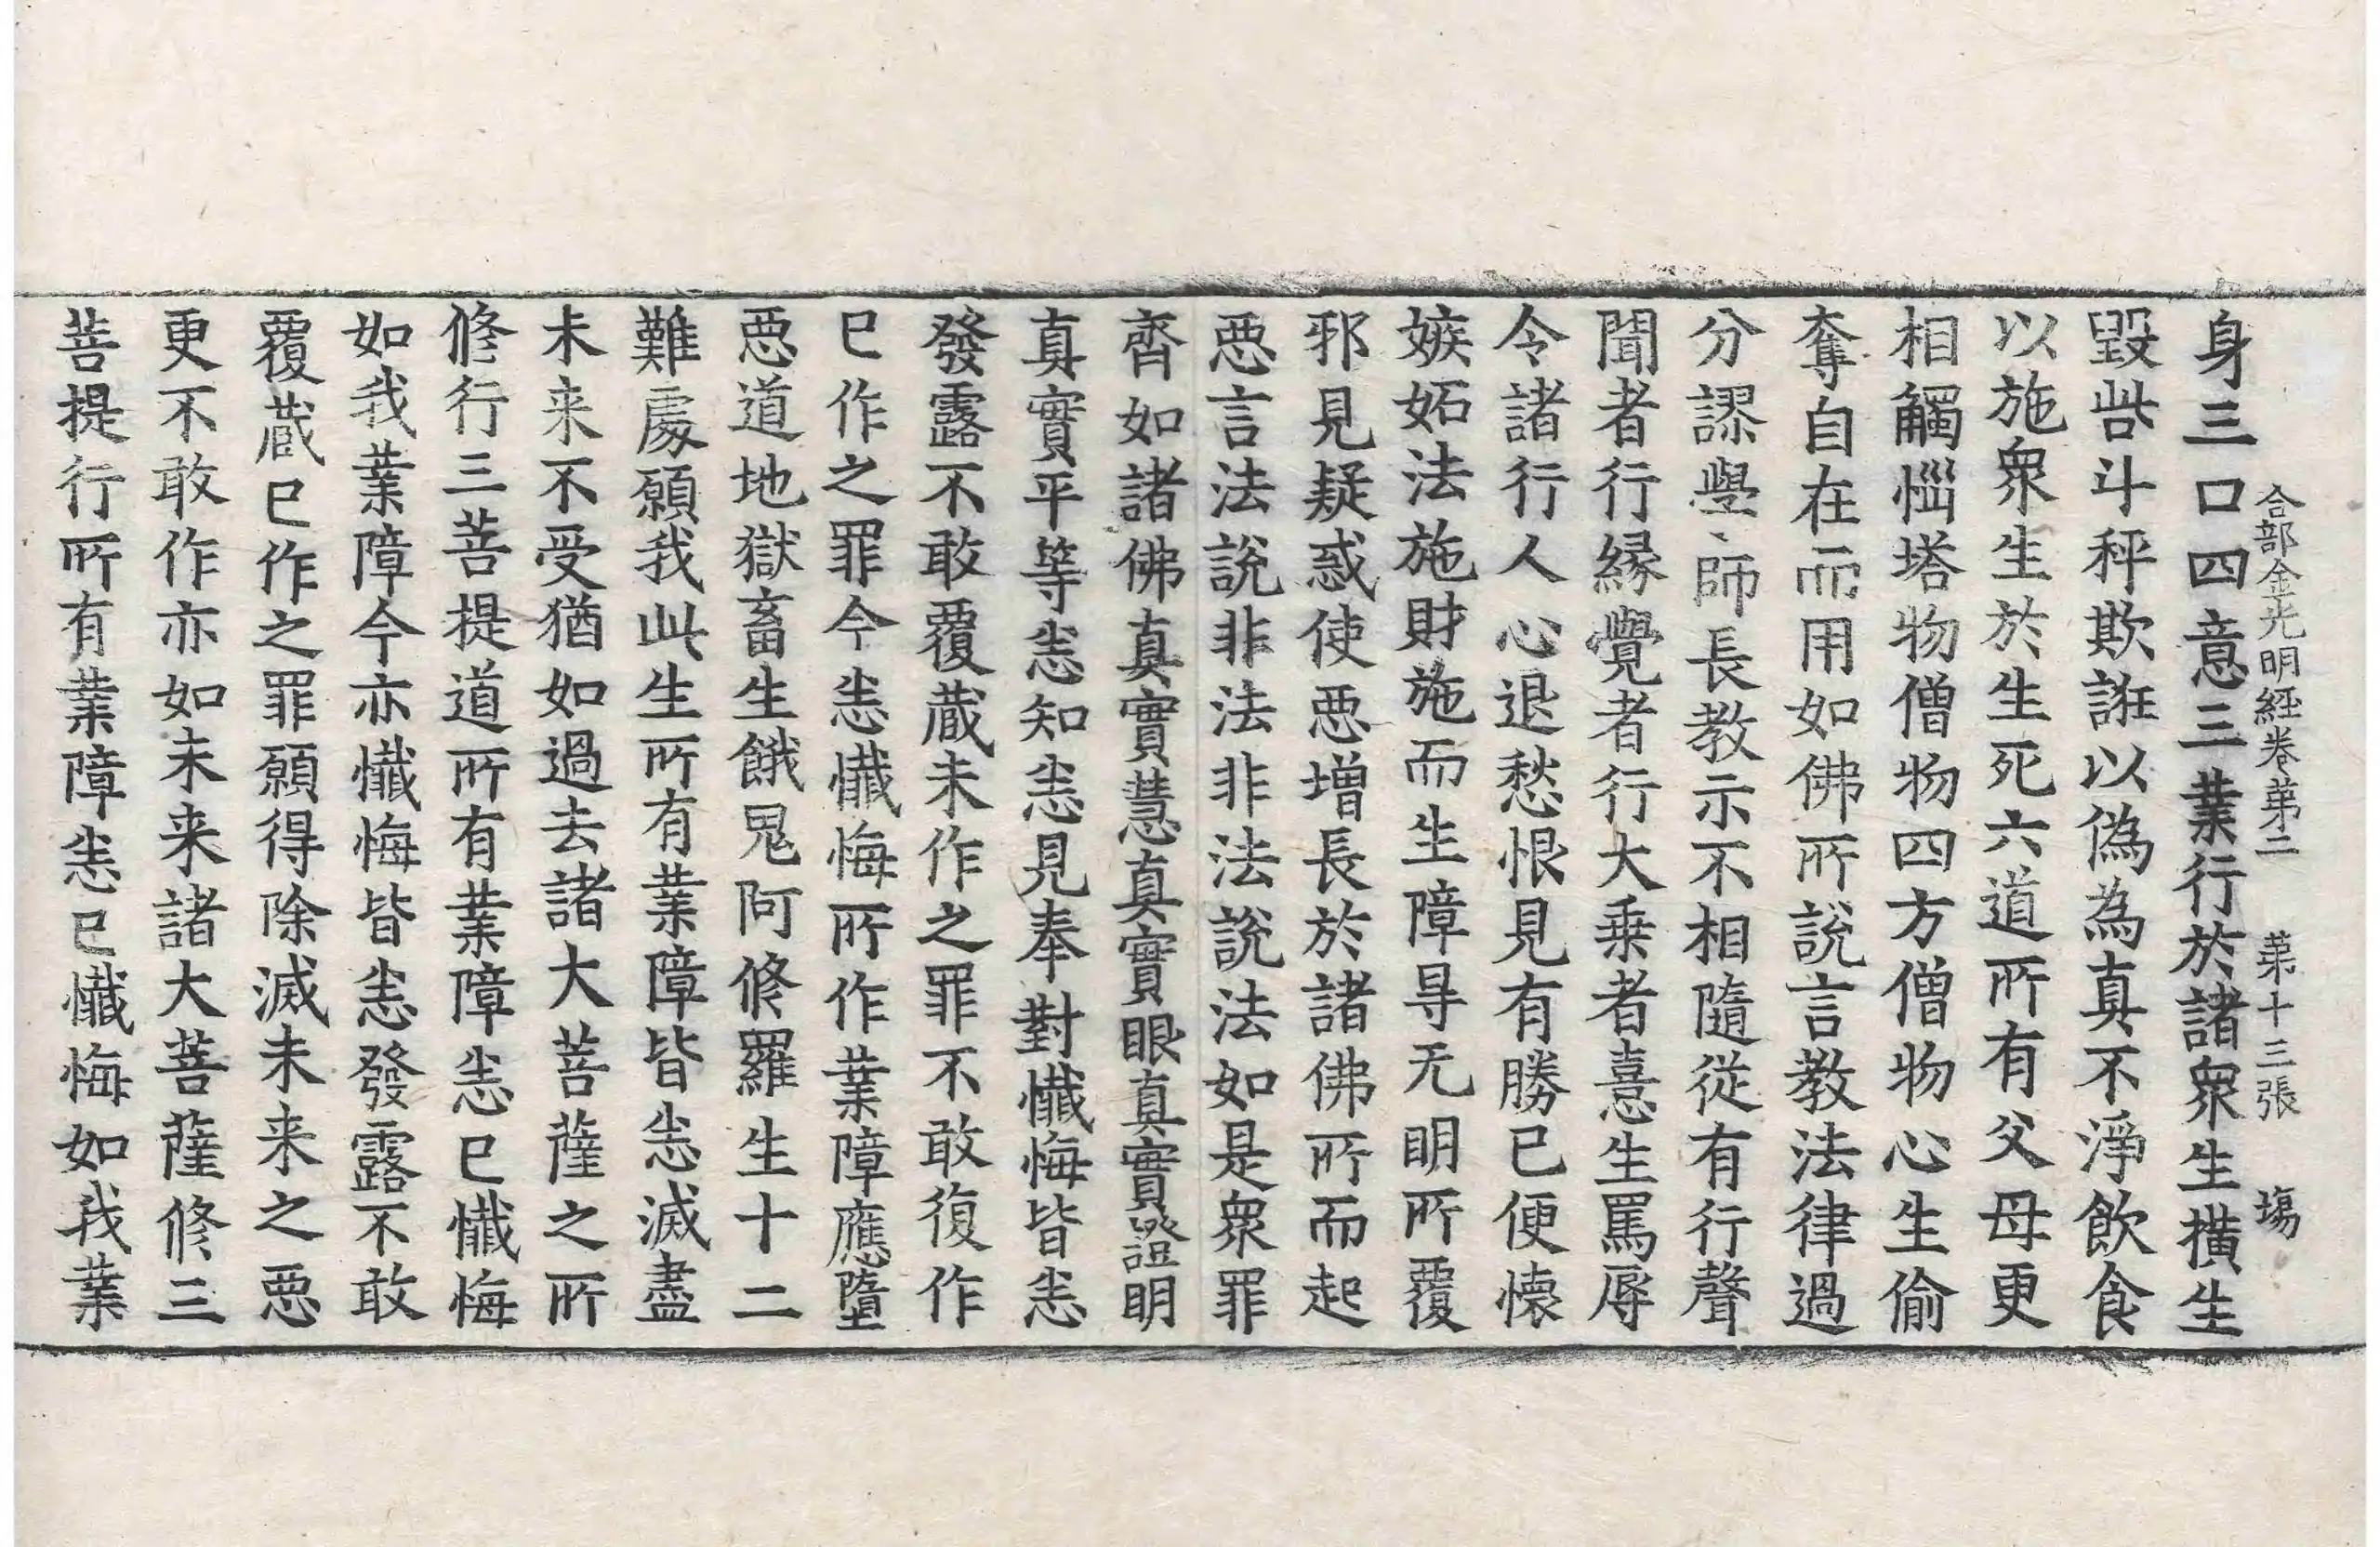 合部金光明經卷第二 第十三張 塲
身三口四意三業行於諸衆生橫生
毀呰斗秤欺誑以偽為真不淨飲食
以施衆生於生死六道所有父母更
相觸惱塔物僧物四方僧物心生偷
奪自在而用如佛所說言教法律過
分謬學師長教示不相隨從有行聲
聞者行縁覺者行大乗者憙生罵辱
令諸行人心退愁恨見有勝已便懐
嫉妬法施財施而生障㝵无明所覆
邪見疑惑使惡增長於諸佛所而起
惡言法說非法非法說法如是衆罪
齊如諸佛真實慧真實眼真實證明
真實平等悉知悉見奉對懺悔皆悉
發露不敢覆蔵未作之罪不敢復作
已作之罪今悉懺悔所作業障應墮
惡道地獄畜生餓鬼阿修羅生十二
難處願我此生所有業障皆悉滅盡
未来不受猶如過去諸大菩薩之所
修行三菩提道所有業障悉已懺悔
如我業障今亦懺悔皆悉發露不敢
覆蔵已作之罪願得除滅未来之惡
更不敢作亦如未来諸大菩薩修三
菩提行所有業障悉已懺悔如我業